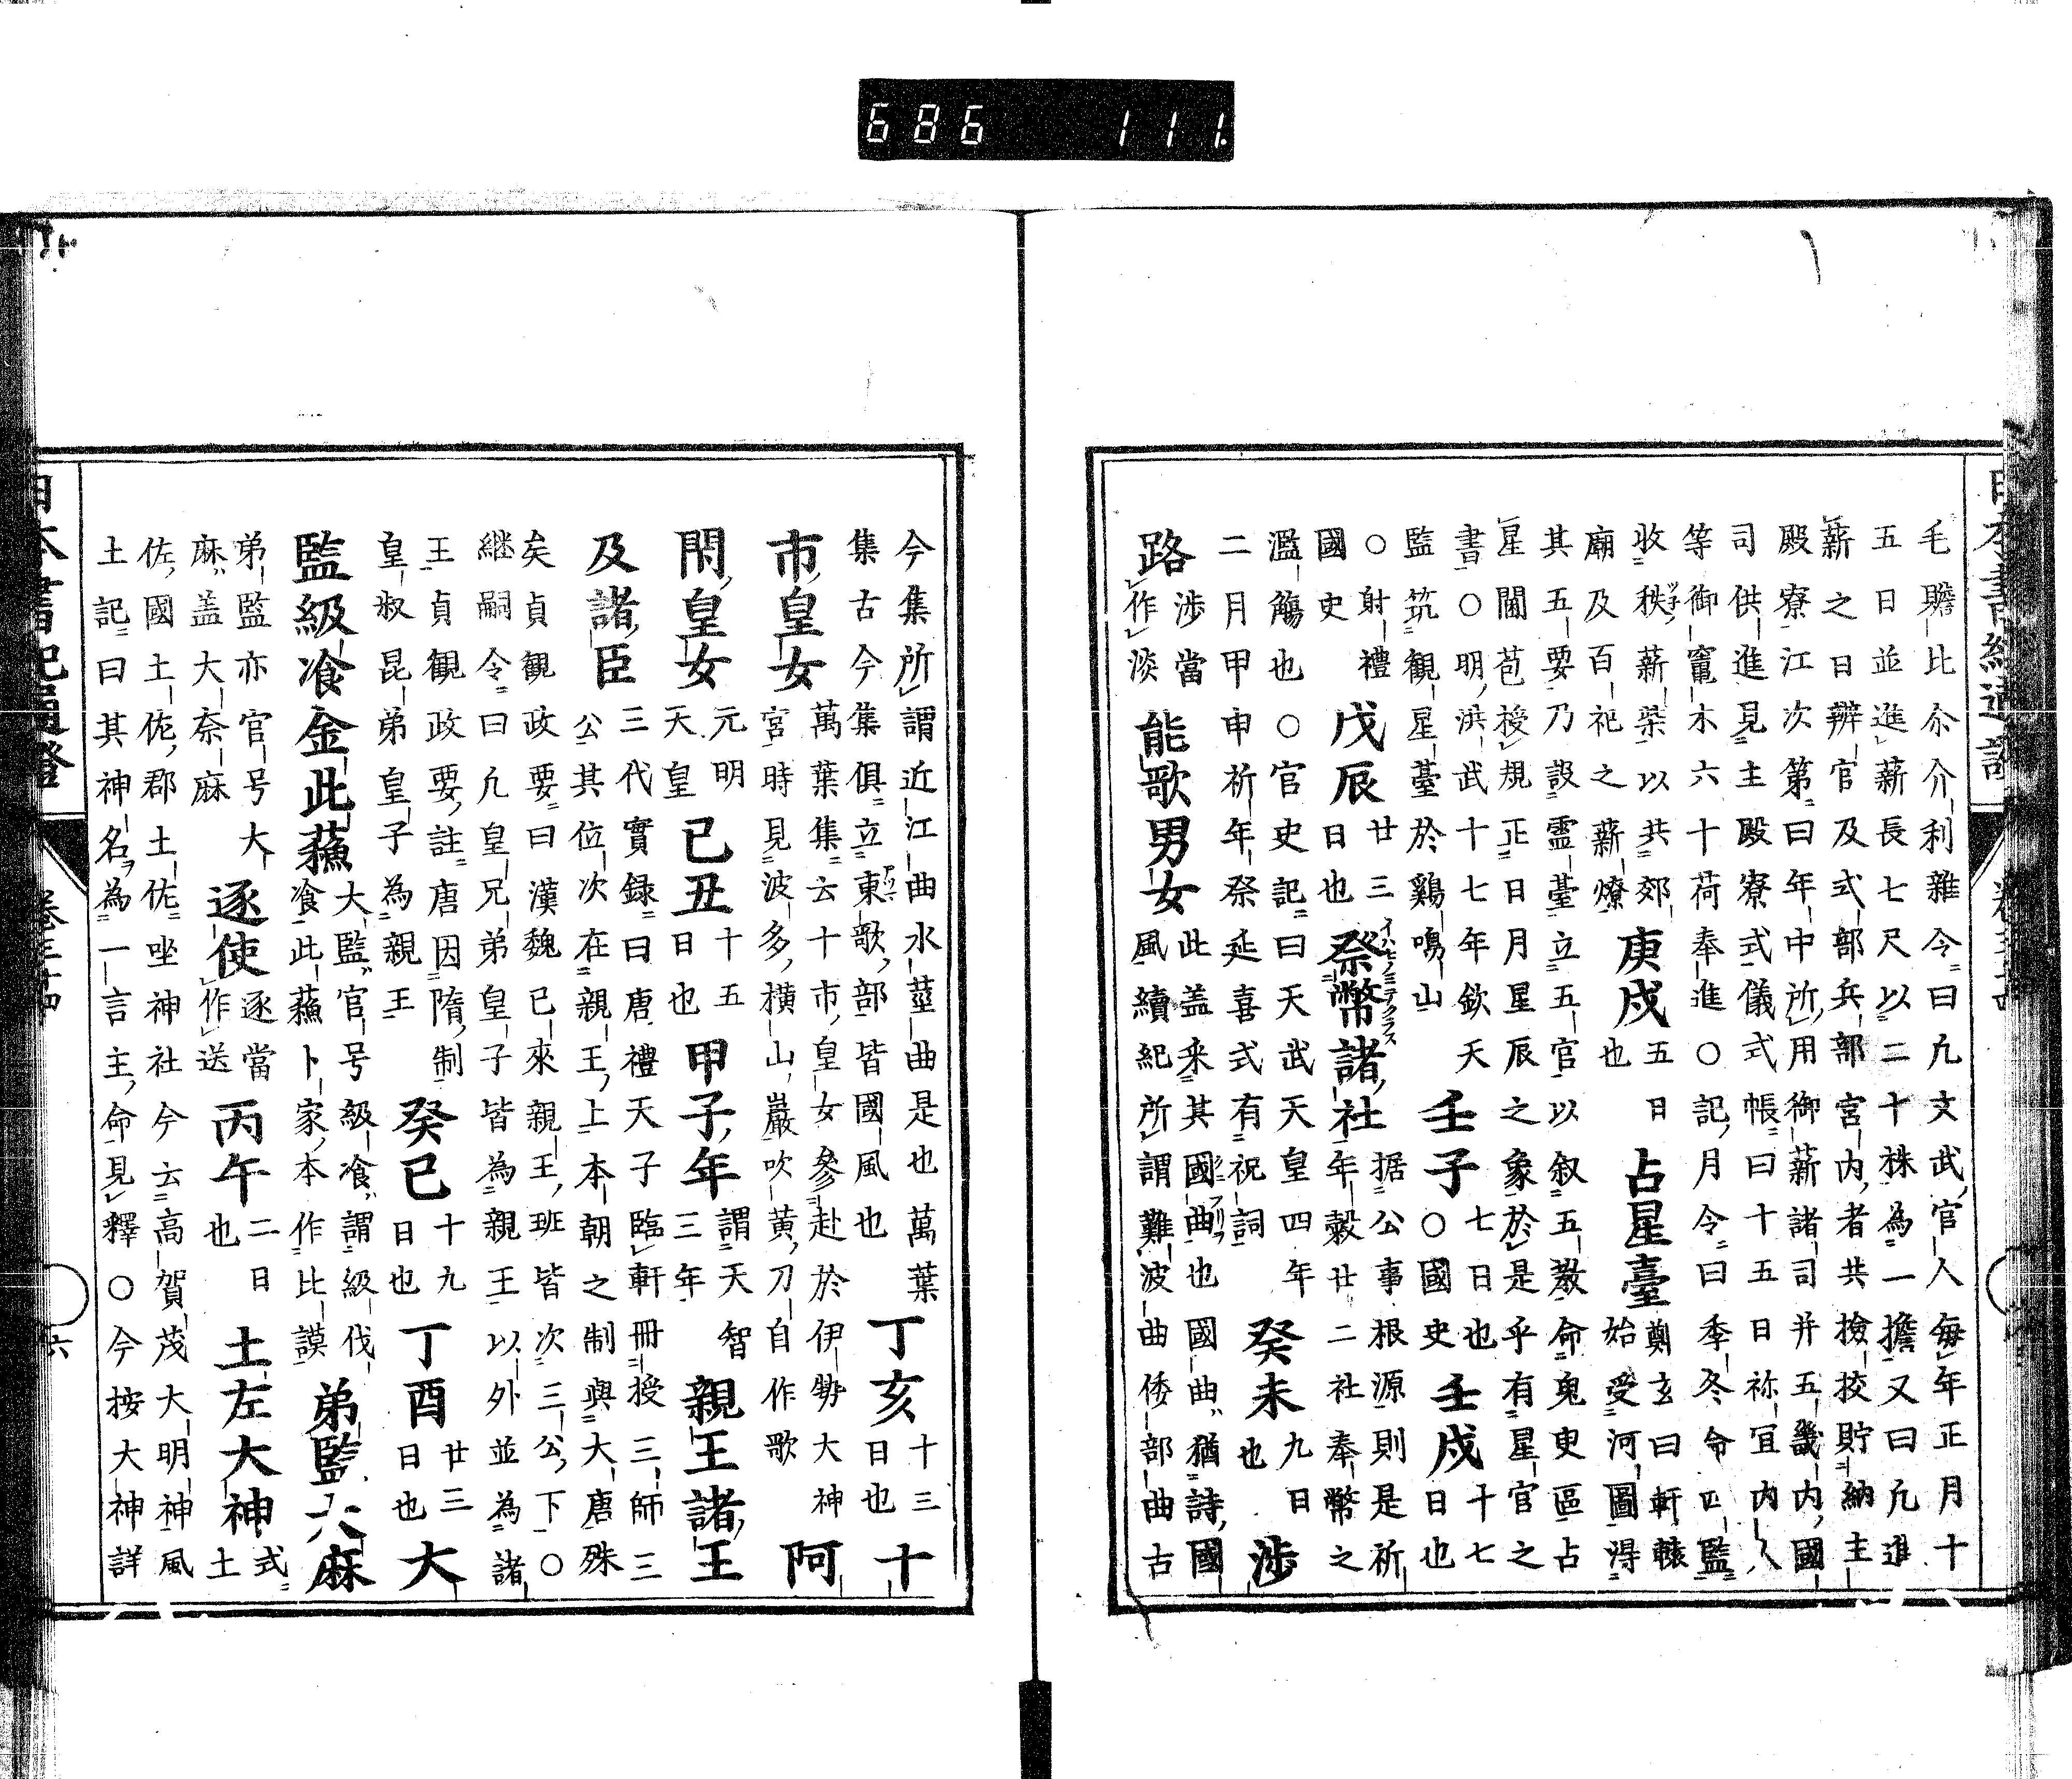 毛賺比尒介利雜令曰凡文武官人毎年正月十
五日並進薪長七尺以二十株為一擔又曰凡進
薪之日辨官及式部兵部宮内者共撿挍貯納主
殿寮江次第曰年中所用御薪諸司并五畿内國
司供進見主殿寮式儀式帳曰十五日祢宜内人
等御竈木六十荷奉進○記月令曰季冬命四監
收秩薪柴以共郊
廟及百祀之薪燎
庚戌
五日
也
占星臺
鄭玄曰軒轅
始受河圖得
其五要乃設靈臺立五官以叙五教命鬼臾區占
星闚苞授規正日月星辰之象於是乎有星官之
書○明洪武十七年欽天
監筑觀星臺於鷄鳴山
壬子
七日也
○國史
壬戌
十七
日也
○射禮
國史
戊辰
廿三
日也
祭幣諸社
イハヒノミテクラス
据公事根源則是祈
年穀廿二社奉幣之
濫觴也○官史記曰天武天皇四年
二月甲申祈年祭延喜式有祝詞
癸未
九日
也
渉
路
渉當
作淡
能歌男女
此盖来其國曲也國曲猶詩國
風續紀所謂難波曲倭部曲古
六
今集所謂近江曲水莖曲是也萬葉
集古今集俱立東歌部皆國風也
丁亥
十三
日也
十
市皇女
萬葉集云十市皇女參赴於伊勢大神
宮時見波多横山巖吹黄刀自作歌
阿
閇皇女
元明
天皇
已丑
十五
日也
甲子年
謂天智
三年
親王諸王
及諸臣
三代實録曰唐禮天子臨軒冊授三師三
公其位次在親王上本朝之制與大唐殊
矣貞觀政要曰漢魏已來親王班皆次三公下○
継嗣令曰凡皇兄弟皇子皆為親王以外並為諸
王貞觀政要註唐因隋制
皇叔昆弟皇子為親王
癸已
十九
日也
丁酉
廿三
日也
大
監級飡金此蘓
大監官号級飡謂級伐
飡此蘓卜家本作比謨
弟監大麻
弟監亦官号大
麻盖大奈麻
逐使
逐當
作送
丙午
二日
也
土左大神
式
土
佐國土佐郡土佐坐神社今云高賀茂大明神風
土記曰其神名為一言主命見釋○今按大神詳
686 111